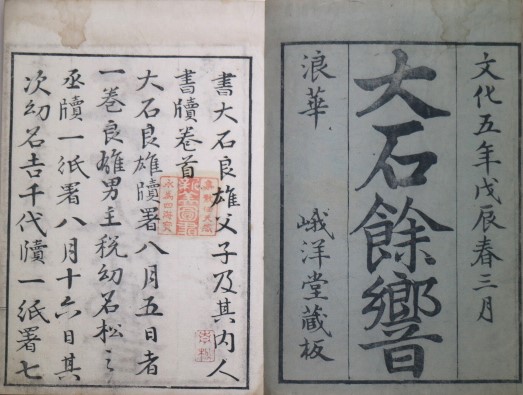 文化五年戊辰春三月
大石餘響
浪華 峨洋堂蔵板
書大石良雄父子及其内人
書牘卷首
大石良雄牘署八月五日者
一卷良雄男主税幼名松之
丞牘一紙署八月十六日其
次幼名吉千代牘一紙署七